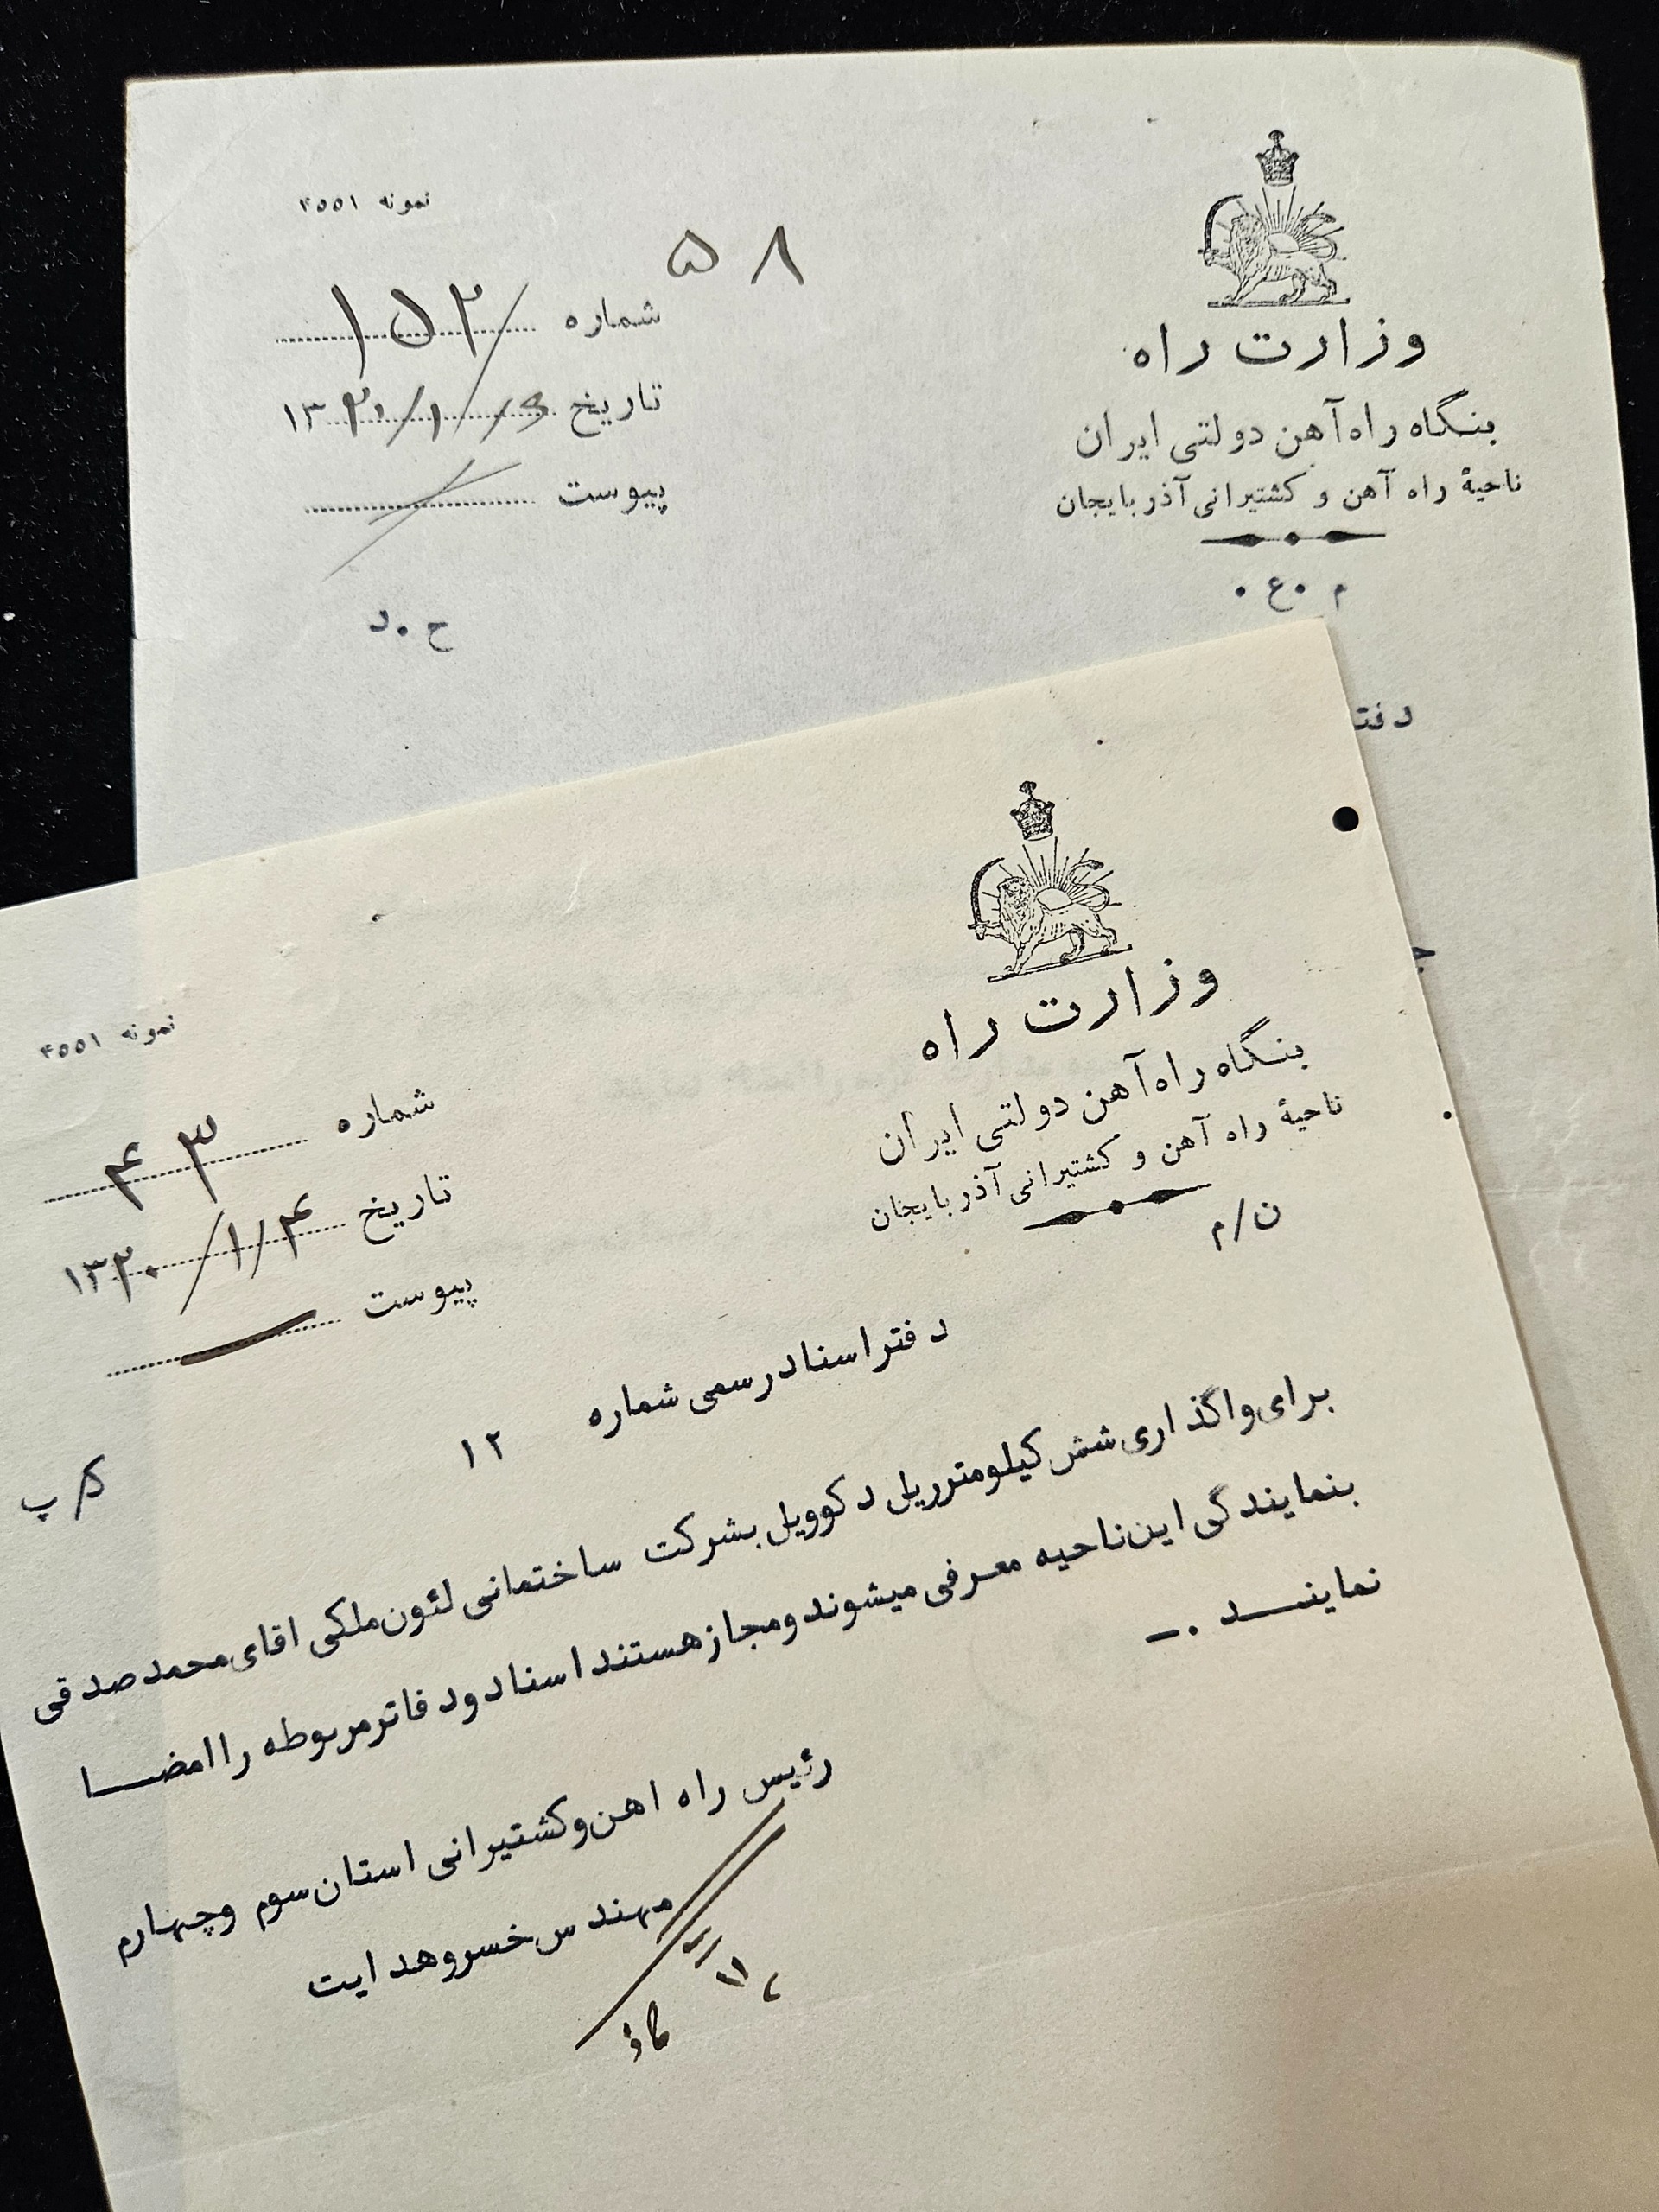 نمونه ۴۵۵۱
۵۸
شماره ۱۵۲/
تاریخ ۱۳۲۰/۱/۶
پیوست
وزارت راه
بنگاه راه‌آهن دولتی ایران
ناحیهٔ راه آهن و کشتیرانی آذربایجان
م ۰ع ۰
ح ۰د
دفت
نمونه ۴۵۵۱
شماره ۴۳
تاریخ ۱۳۲۰/۱/۴
پیوست
وزارت راه
بنگاه راه‌آهن دولتی ایران
ناحیهٔ راه آهن و کشتیرانی آذربایجان
ن/م
دفتر اسناد رسمی شماره ۱۲
برای واگذاری شش کیلومتر ریل دکوویل بشرکت ساختمانی لئون ملکی اقای محمد صدقی
بنمایندگی این ناحیه معرفی میشوند و مجاز هستند اسناد و دفاتر مربوطه را امضا
نمایند ۰ـ
رئیس راه اهن و کشتیرانی استان سوم و چهارم
مهندس خسرو هدایت